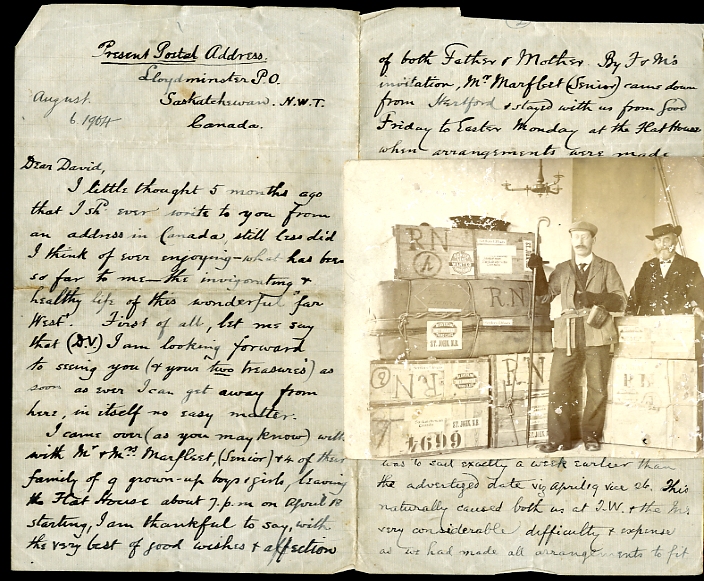 Present Postal Address.
Lloydminster P.O.
August
Saskatchewan. N.W.T.
6. 1904
Canada.
Dear David,
I little thought 5 months ago
that I shd ever write to you from
an address in Canada still less did
I think of ever enjoying – what has been
so far to me – the invigorating &
healthy life of this wonderful 'far
West'. First of all, let me say
that (D.V.) I am looking forward
to seeing you (& your 'two treasures') as
soon as ever I can get away from
here, in itself no easy matter.
I came over (as you may know) with
with Mr & Mrs Marfleet, (Senior) & 4 of their
family of 9 grown-up boys & girls, leaving
the Flat House about 7.p.m on April 18
starting, I am thankful to say, with
the very best of good wishes & affection
of both Father & Mother. By F & M's
invitation, Mr Marfleet (Senior) came down
from Hertford & stayed with us from Good
Friday to Easter Monday at the Flat House
when arrangements were made
RN
RN
ST. JOHN, N.B.
RN
RN
ST. JOHN, N.B.
7
4699
was to sail exactly a week earlier than
the advertized date viz April 19 vice 26. This
naturally caused both us at T.W. & the Ms
very considerable difficulty & expense
as we had made all arrangements to fit